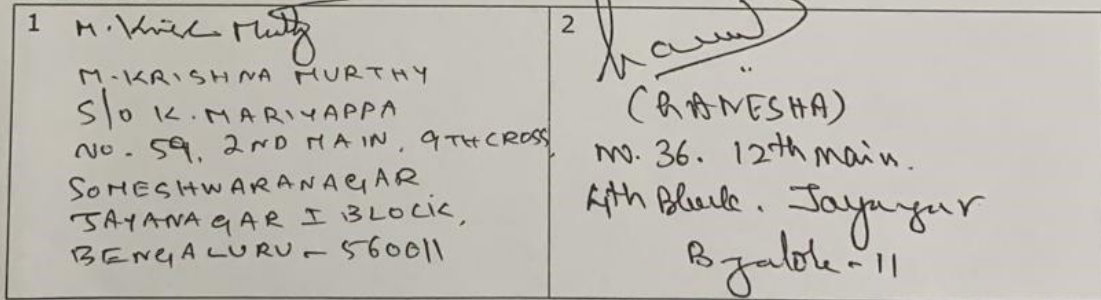 1
M. Krishna Murthy
M. KRISHNA MURTHY
S/O K. MARIYAPPA
NO. 59, 2ND MAIN, 9TH CROSS,
SOMESHWARANAGAR
JAYANAGAR I BLOCK,
BENGALURU - 560011
2
(GANESHA)
No. 36. 12th main.
4th Block. Jayanagar
B'galore - 11